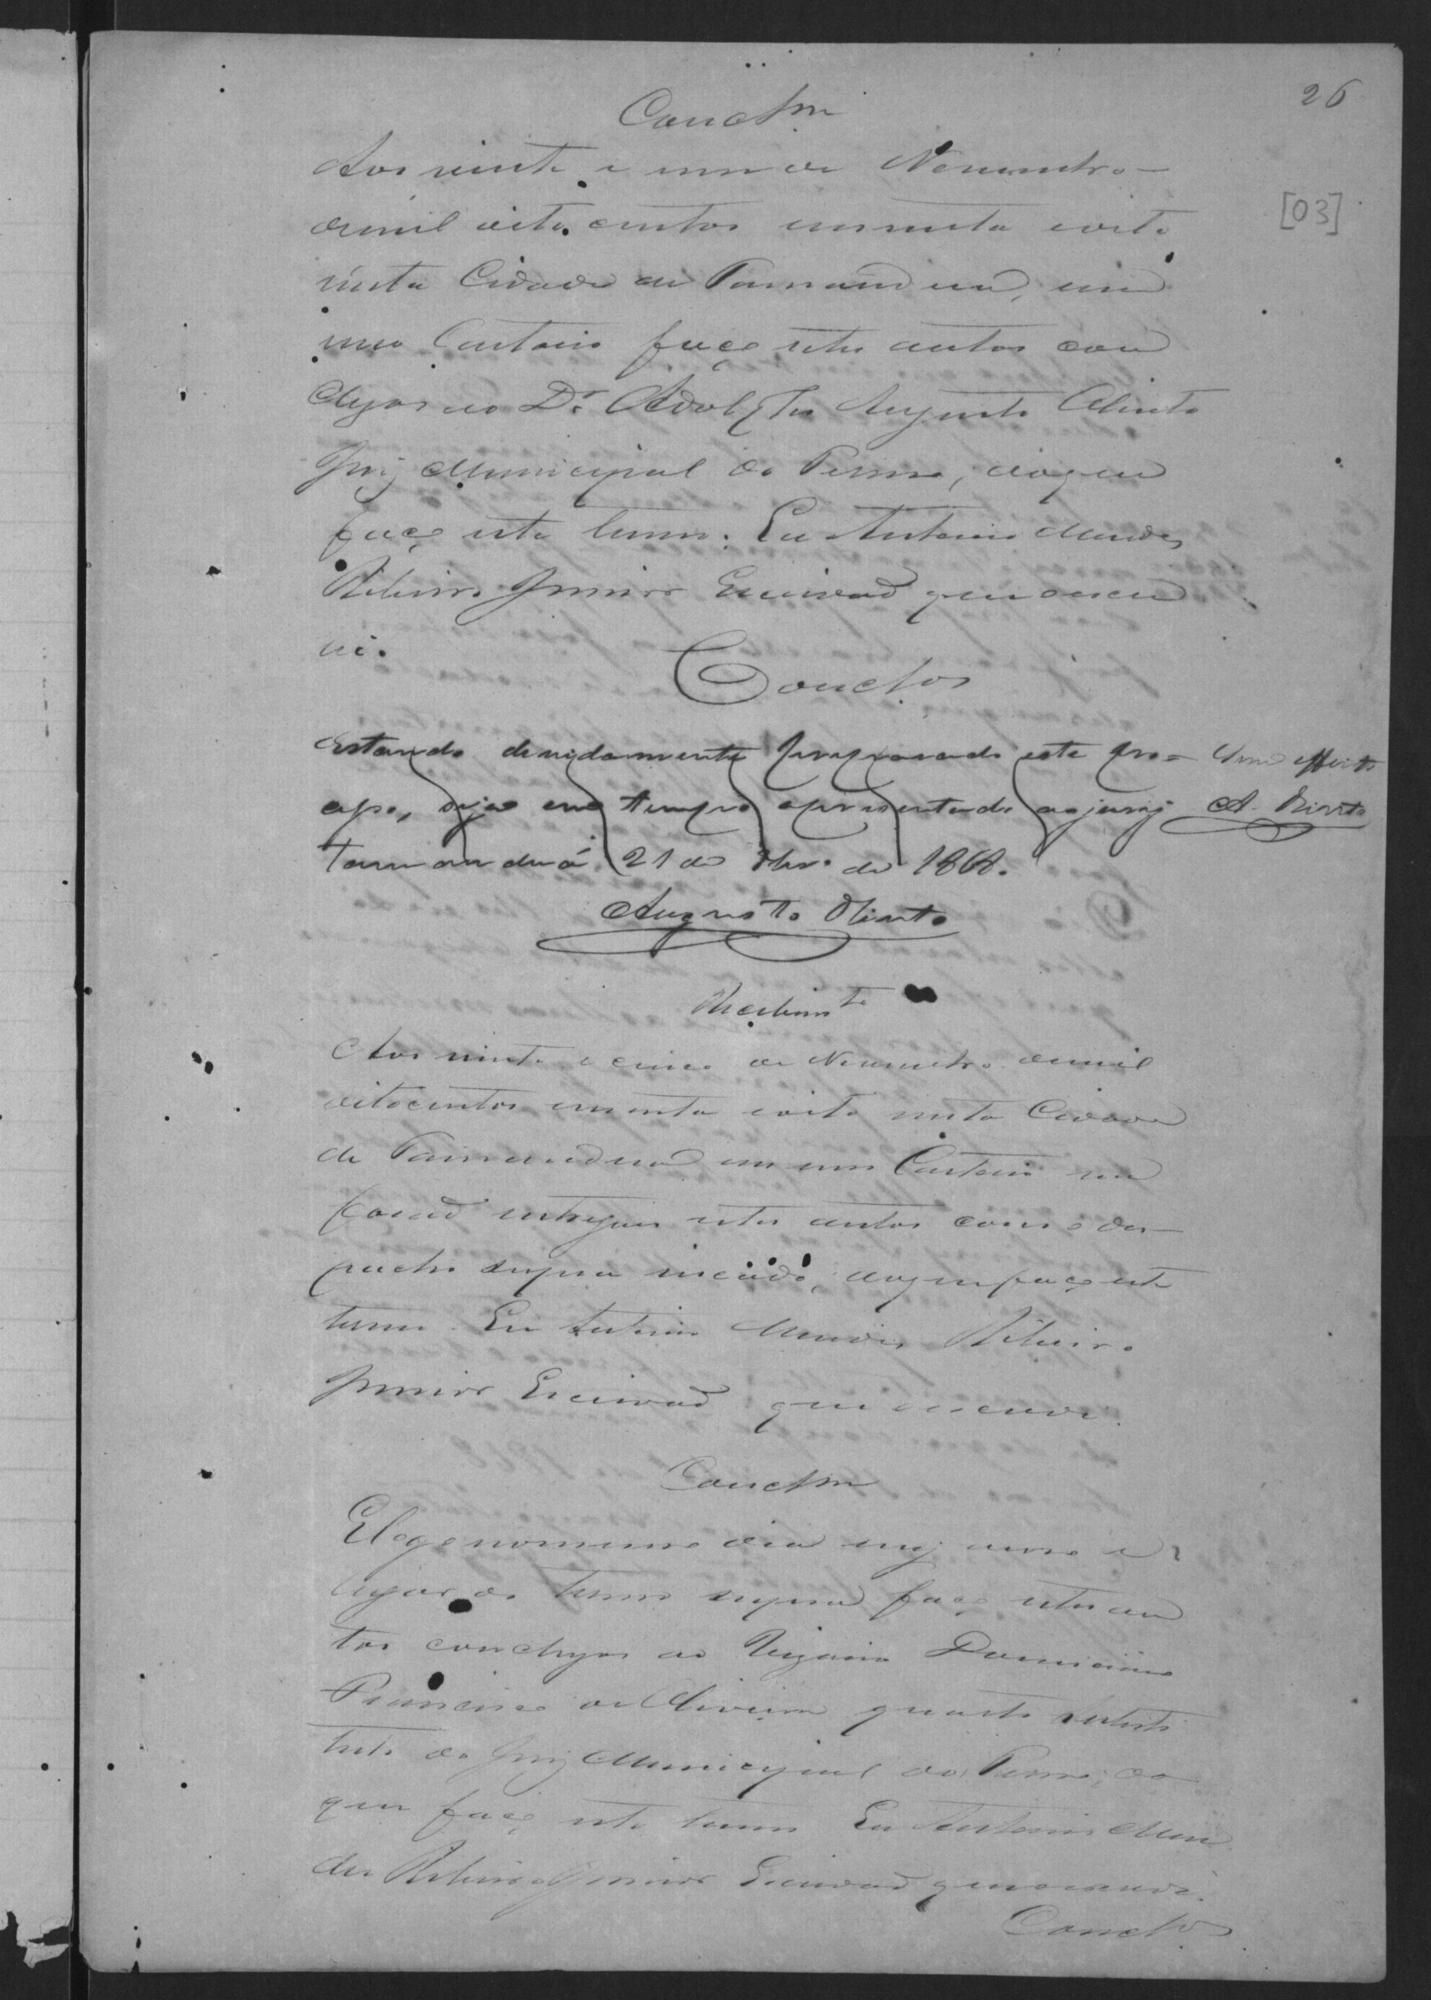 26
Concl.am
Aos vinte e um de Novembro
demil oito centos sessenta eoito
nesta Cidade de Tamanduá, em
meo Cartorio faço estes autos con
clusos ao Dr. Adolpho Augusto Olinto
Juiz Municipal do Termo, doque
faço este termo. Eu Antonio Mendes
Ribeiro Junior Escrivaõ que oescre
vi.
[03]
Conclos
Estando devidamente preparado este pro=
cesso, seja em tempo apresentado ao jury
Tamanduá 21 de 9br.o de 1868.
Augusto Olinto
Sem effeito
A. Olinto
Recebim.to
Aos vinte e cinco de Novembro demil
oitocentos sessenta eoito nesta Cidade
de Tamanduá em meo Cartorio me
foraõ entregues estes autos com o des-
pacho supra, doque faço este
termo. Eu Antonio Mendes Ribeiro
Junior Escrivaõ que oescrevi.
Concl.am
E logo nomesmo dia mez anno e
lugar do termo supra faço estes au
tos conclusos ao Vigario Domiciano
Francisco de Oliveira quarto substi
tuto do Juiz Municipal do Termo, do
que faço este termo Eu Antonio Men
des Ribeiro Junior Escrivaõ que oescrevi.
Concl.os